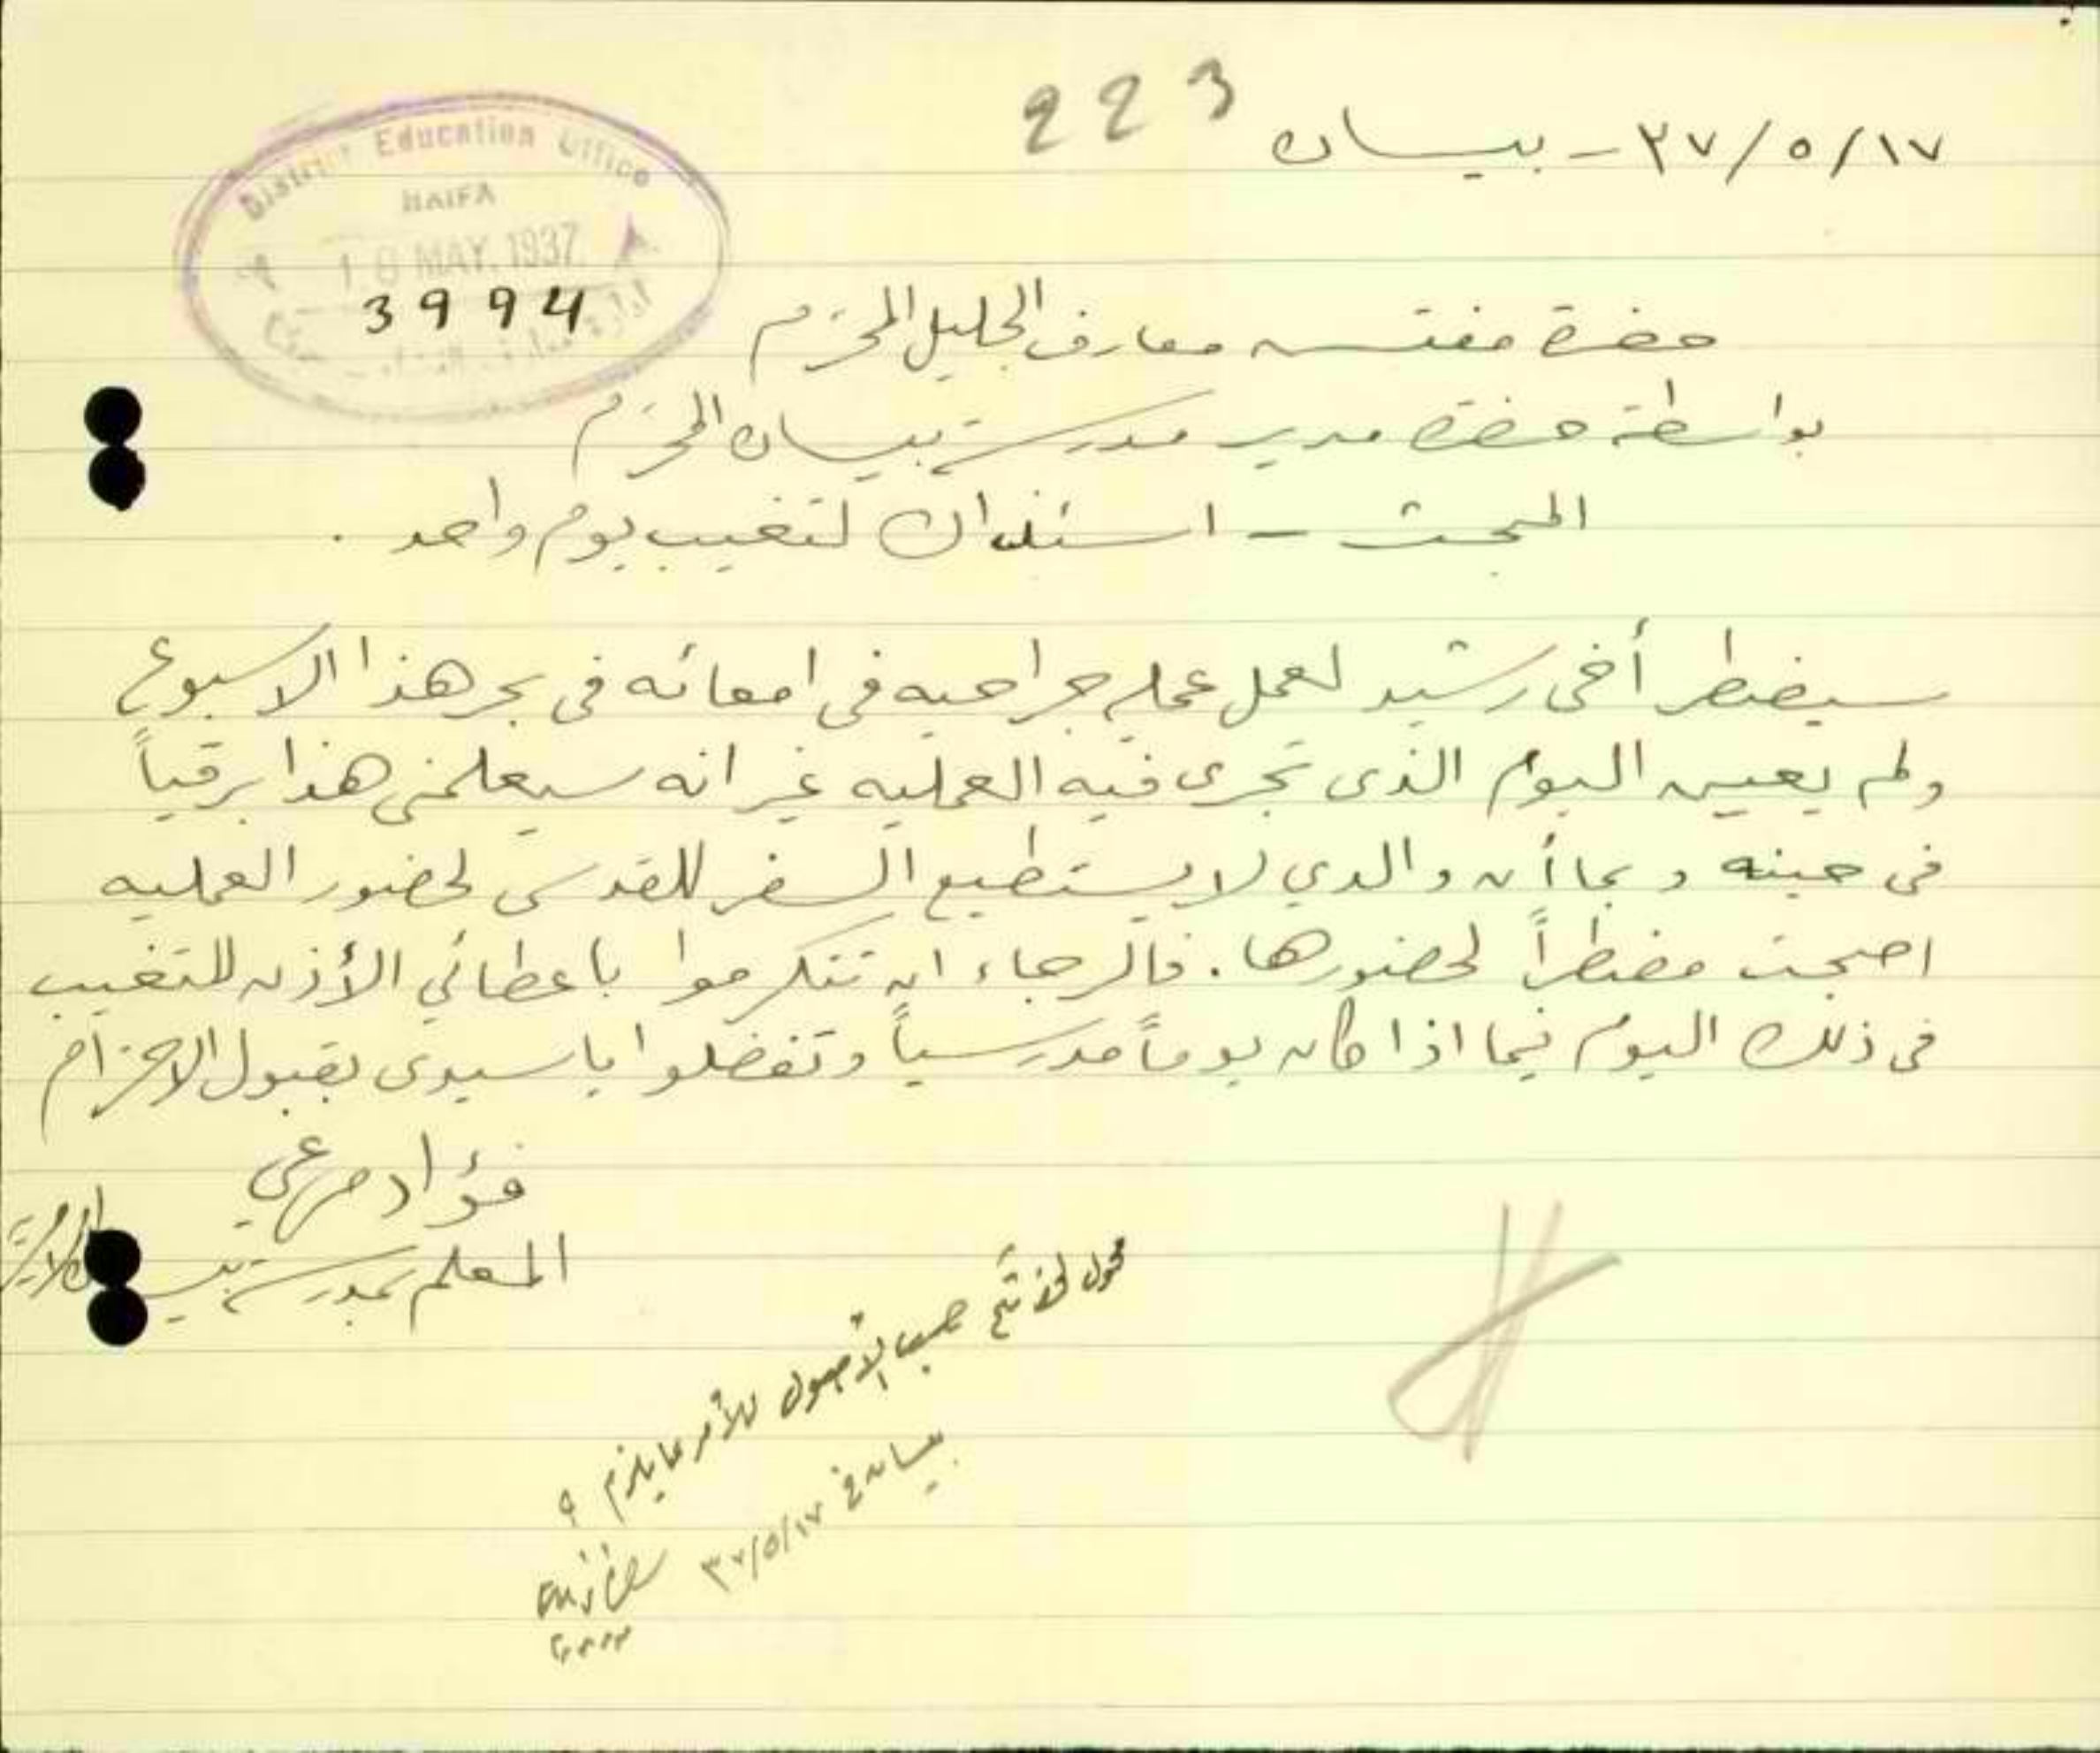 223
١٧/٥/٣٧ - بيسان
District Education Office
HAIFA
18 MAY. 1937
3994
حضرة مفتش معارف الجليل المحترم
بواسطة حضرة مدير مدرسة بيسان المحترم
المبحث - استئذان لتغيب يوم واحد .
سيضطر أخي رشيد لعمل عمليه جراحيه في امعائه في بحر هذا الاسبوع
ولم يعين اليوم الذى تجرى فيه العمليه غير انه سيعلمني هذا برقياً
في حينه وبما أن والدي لا يستطيع السفر للقدس لحضور العمليه
اصبحت مضطراً لحضورها . فالرجاء ان تتكرموا باعطائي الأذن للتغيب
في ذلك اليوم فيما اذا كان يوماً مدرسياً وتفضلوا يا سيدى بقبول الاحترام
فؤاد مرعي
المعلم بمدرسة بيسان الاميرية
محول حسب الأصول للأمر بما يلزم
بيسان في ١٧/٥/٣٧